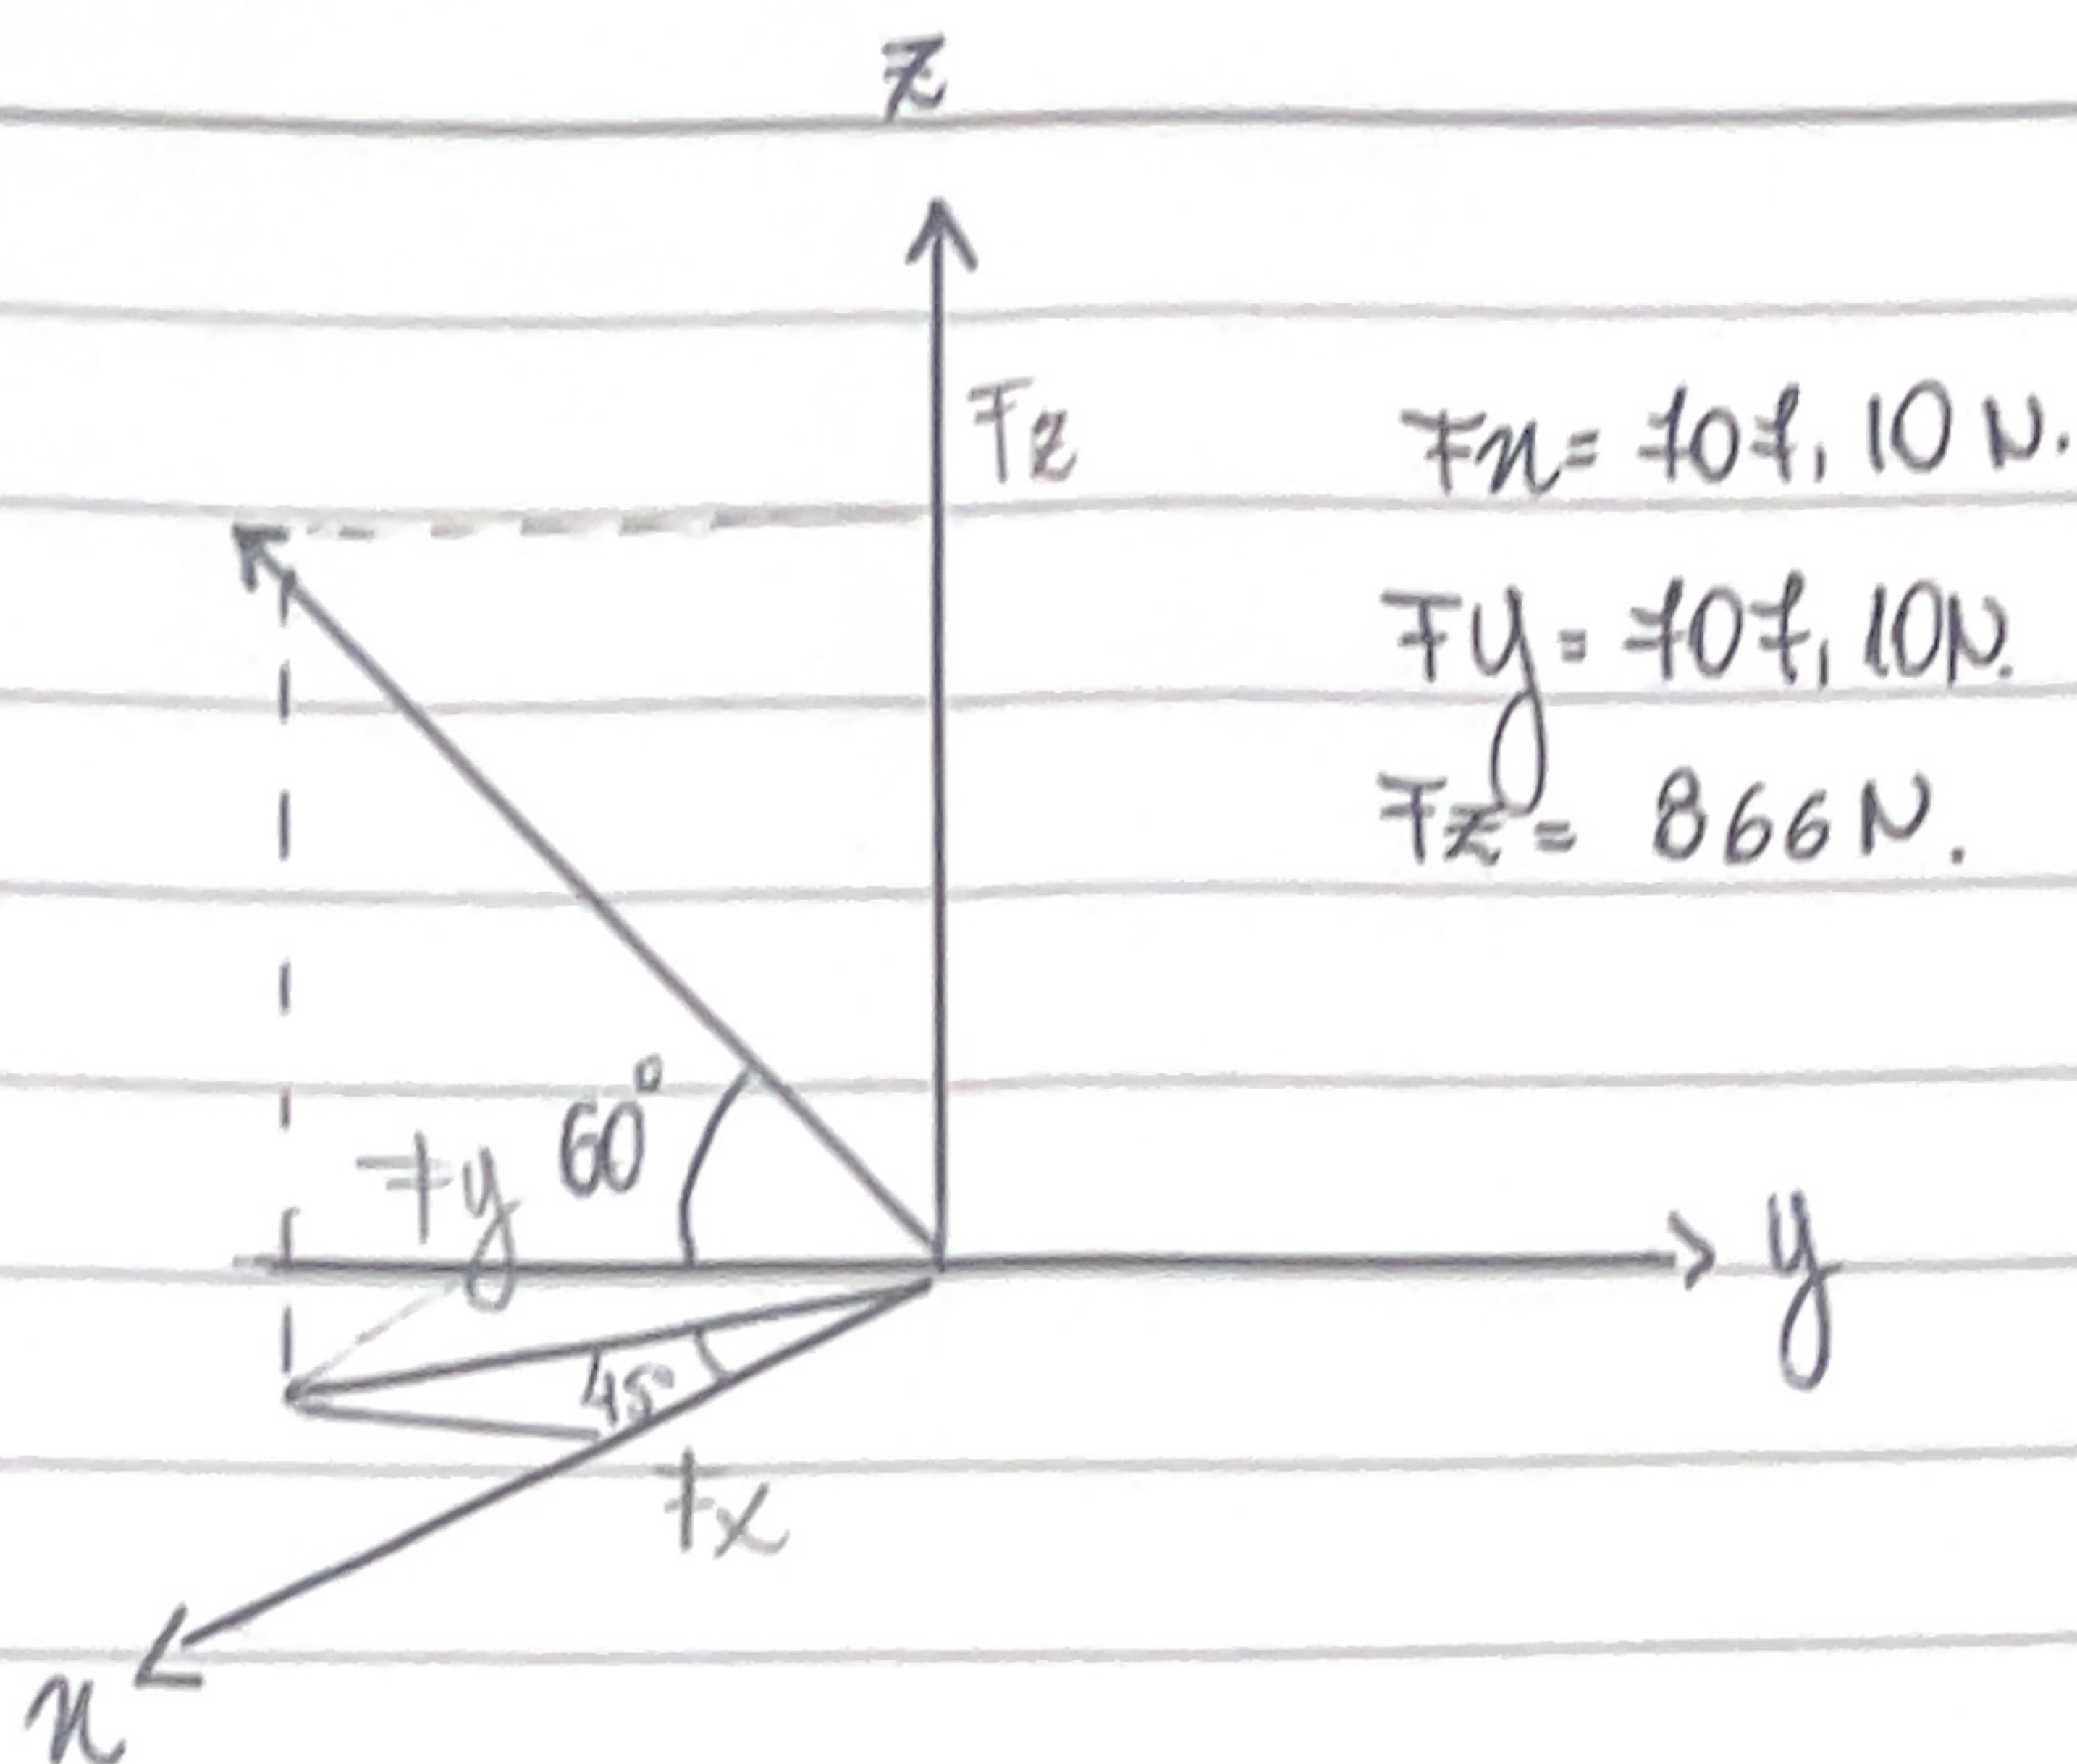 z
Fz
Fx = 707,10 N.
Fy = 707,10 N.
Fz = 866 N.
60°
Fy
y
45°
Fx
x